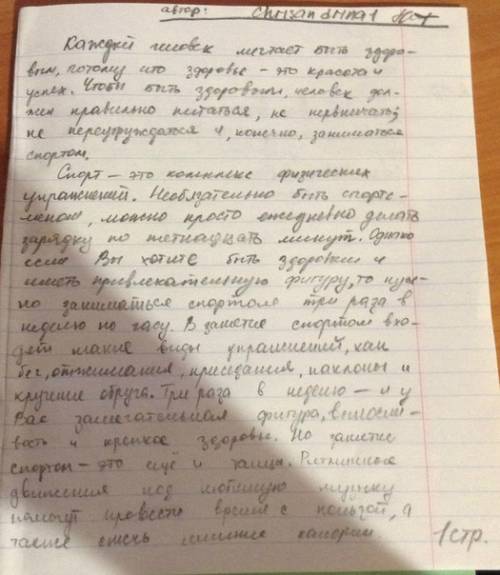 автор: Chrisandrina1
Каждый человек мечтает быть здоро-
вым, потому что здоровье - это красота и
успех. Чтобы быть здоровым, человек дол-
жен правильно питаться, не нервничать,
не переутруждаться и, конечно, заниматься
спортом.
Спорт - это комплекс физических
упражнений. Необязательно быть спортс-
меном, можно просто ежедневно делать
зарядку по пятнадцать минут. Однако
если Вы хотите быть здоровым и
иметь привлекательную фигуру, то нуж-
но заниматься спортом три раза в
неделю по часу. В занятие спортом вхо-
дят такие виды упражнений, как
бег, отжимания, приседания, наклоны и
кручение обруча. Три раза в неделю - и у
Вас замечательная фигура, вынослі-
вость и крепкое здоровье. Но занятие
спортом - это ещё и танцы. Ритмичные
движения под любимую музыку
помогут провести время с пользой, а
также сжечь лишние калории.
1 стр.